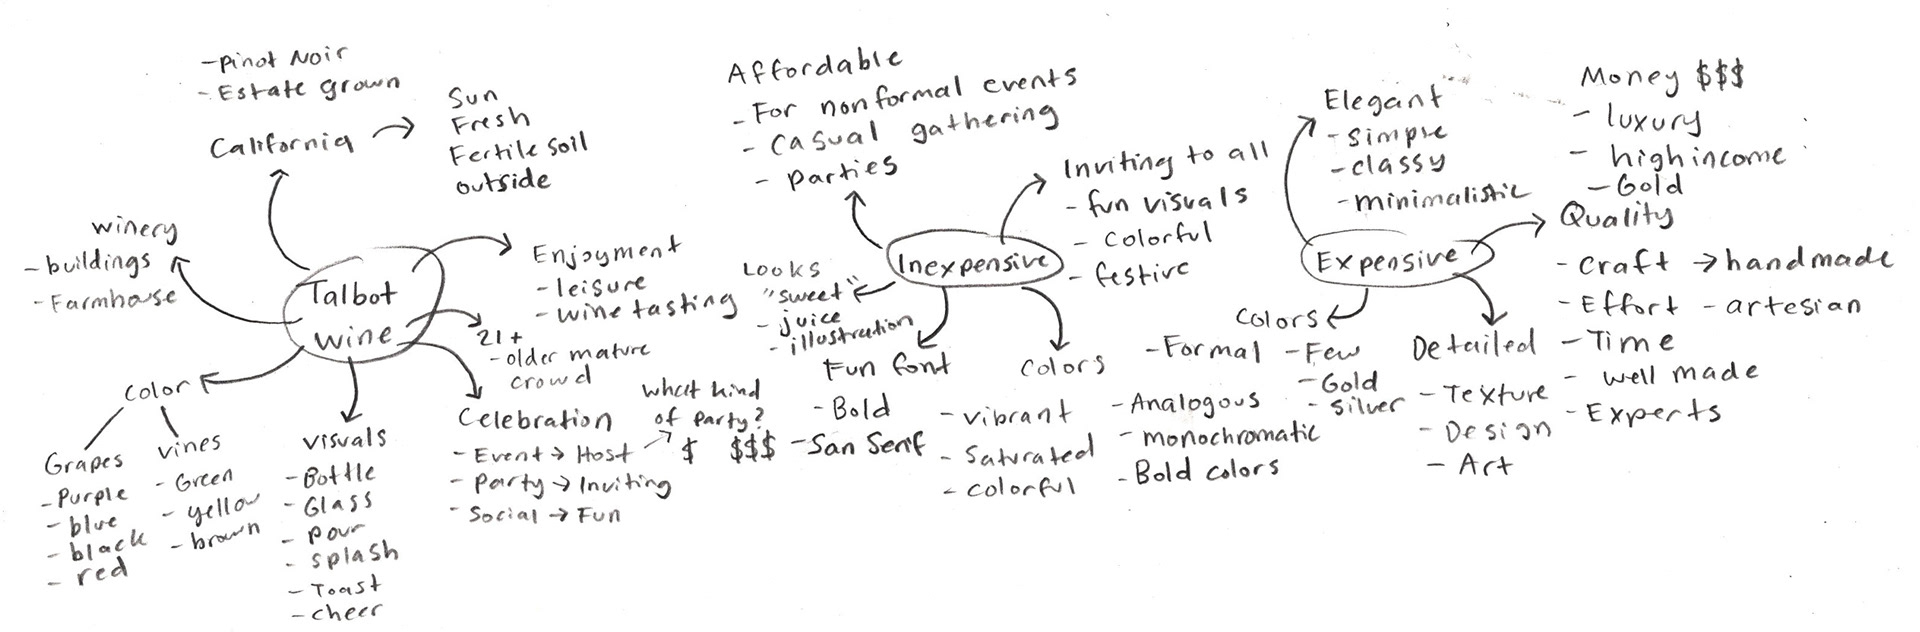 -Pinot Noir
-Estate grown
California
Sun
Fresh
Fertile soil
outside
winery
-buildings
-Farmhouse
Talbot
wine
Enjoyment
-leisure
-wine tasting
21+
-older mature
crowd
Color
Grapes
-Purple
-blue
-black
-red
vines
-Green
-yellow
-brown
visuals
-Bottle
-Glass
-pour
-splash
-Toast
-cheer
Celebration
-Event → Host
-Party → Inviting
-Social → Fun
what kind
of party?
$ $$$
Affordable
-For nonformal events
-Casual gathering
-Parties
Inviting to all
-fun visuals
-colorful
-festive
Inexpensive
Looks
"sweet"
-juice
-illustration
Fun font
-Bold
-San Serif
Colors
-vibrant
-Saturated
-colorful
Elegant
-simple
-classy
-minimalistic
Expensive
Money $$$
-luxury
-high income
-Gold
Quality
-craft → handmade
-Effort -artesian
-Time
-well made
-Experts
Colors
-Formal -Few
-Gold
-silver
-Analogous
-monochromatic
-Bold colors
Detailed
-Texture
-Design
-Art